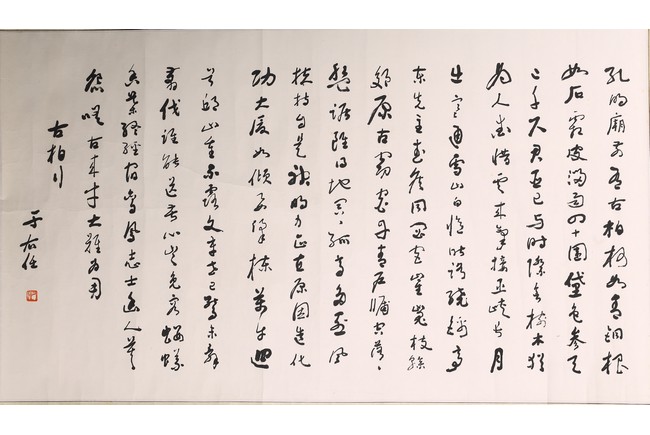 孔明廟前有古柏柯如青銅根
如石霜皮溜雨四十圍黛色參天
二千尺君臣已與時際會樹木猶
為人愛惜雲來氣接巫峽長月
出寒通雪山白憶昨路繞錦亭
東先主武侯同閟宮崔嵬枝幹
郊原古窈窕丹青戶牖空落落
盤踞雖得地冥冥孤高多烈風
扶持自是神明力正直原因造化
功大廈如傾要梁棟萬牛迴
首邱山重不露文章世已驚未辭
翦伐誰能送苦心豈免容螻蟻
香葉終經宿鸞鳳志士幽人莫
怨嗟古來材大難為用
古柏行
于右任